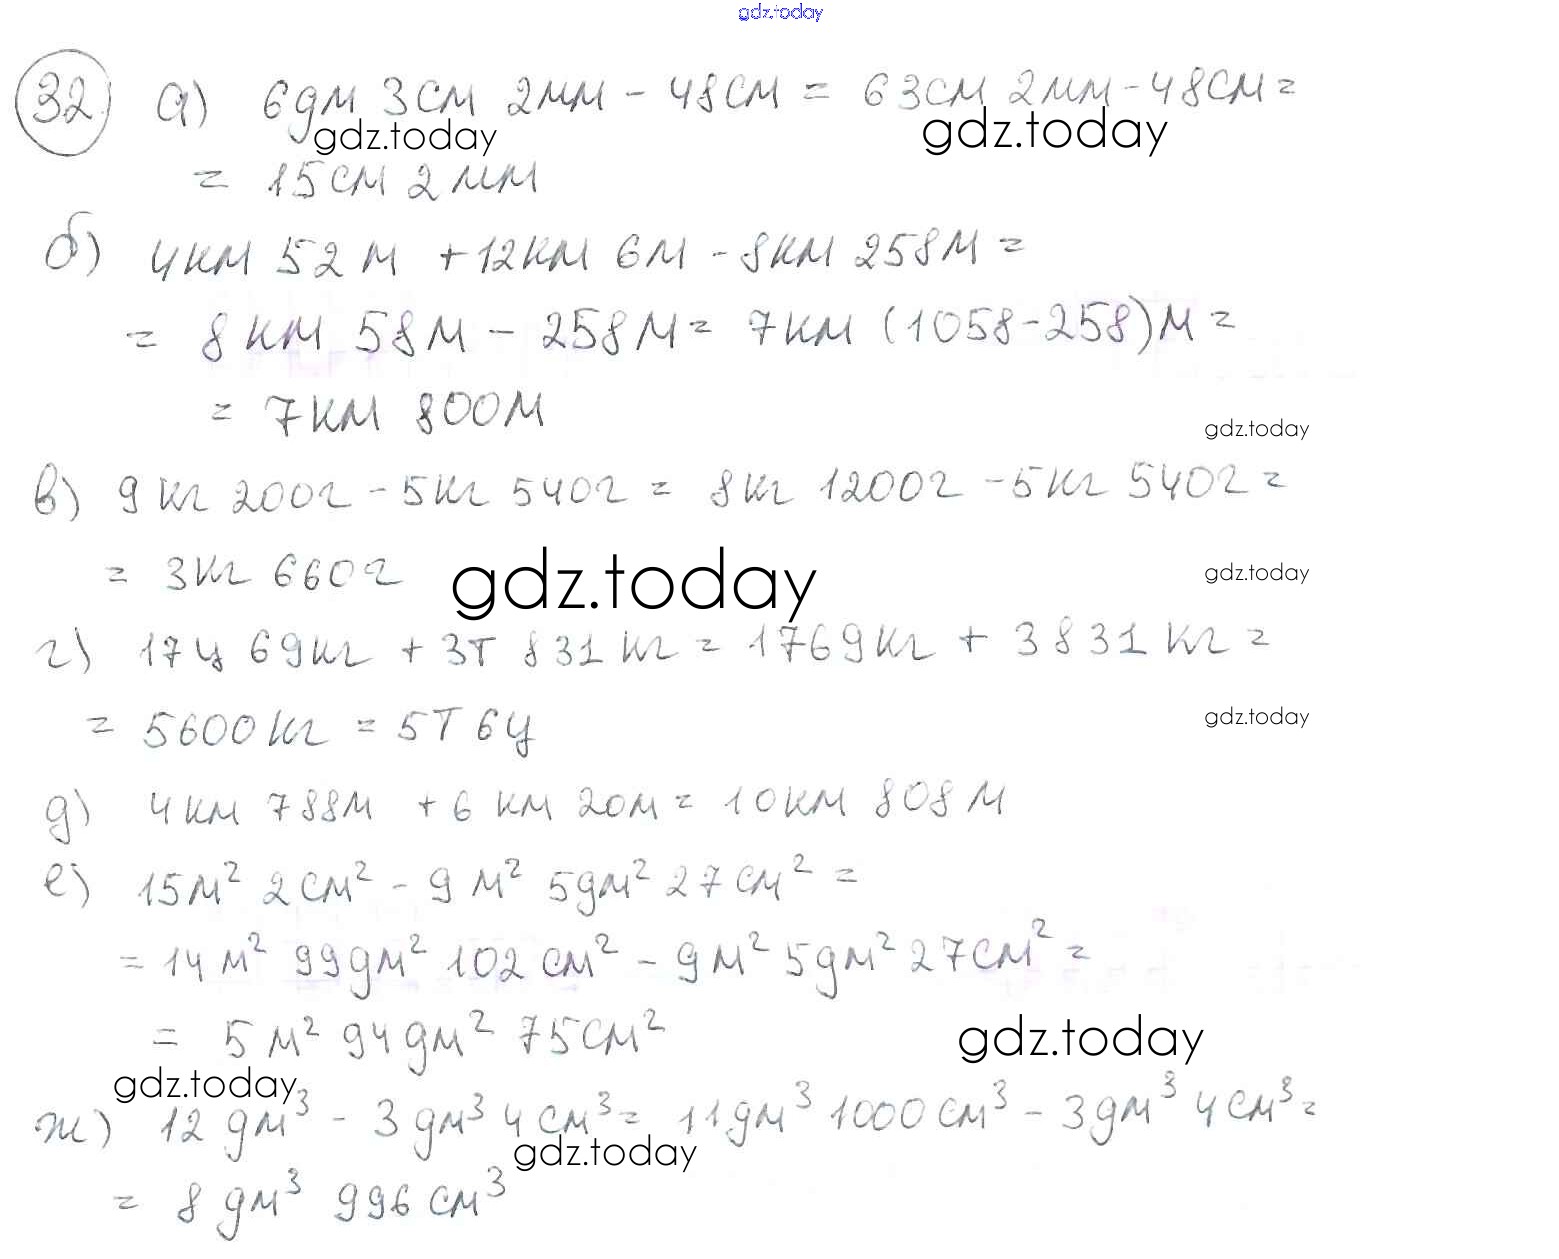 gdz.today
32 а) 6дм 3см 2мм - 48см = 63см 2мм - 48см =
gdz.today gdz.today
= 15см 2мм
б) 4км 52м + 12км 6м - 8км 258м =
= 8км 58м - 258м = 7км (1058-258)м =
= 7км 800м
gdz.today
в) 9кг 200г - 5кг 540г = 8кг 1200г - 5кг 540г =
= 3кг 660г
gdz.today gdz.today
г) 17ц 69кг + 3т 831кг = 1769кг + 3831кг =
= 5600кг = 5т 6ц
gdz.today
д) 4км 788м + 6км 20м = 10км 808м
е) 15м² 2см² - 9м² 5дм² 27см² =
= 14м² 99дм² 102см² - 9м² 5дм² 27см² =
= 5м² 94дм² 75см²
gdz.today
gdz.today
ж) 12дм³ - 3дм³ 4см³ = 11дм³ 1000см³ - 3дм³ 4см³ =
gdz.today
= 8дм³ 996см³